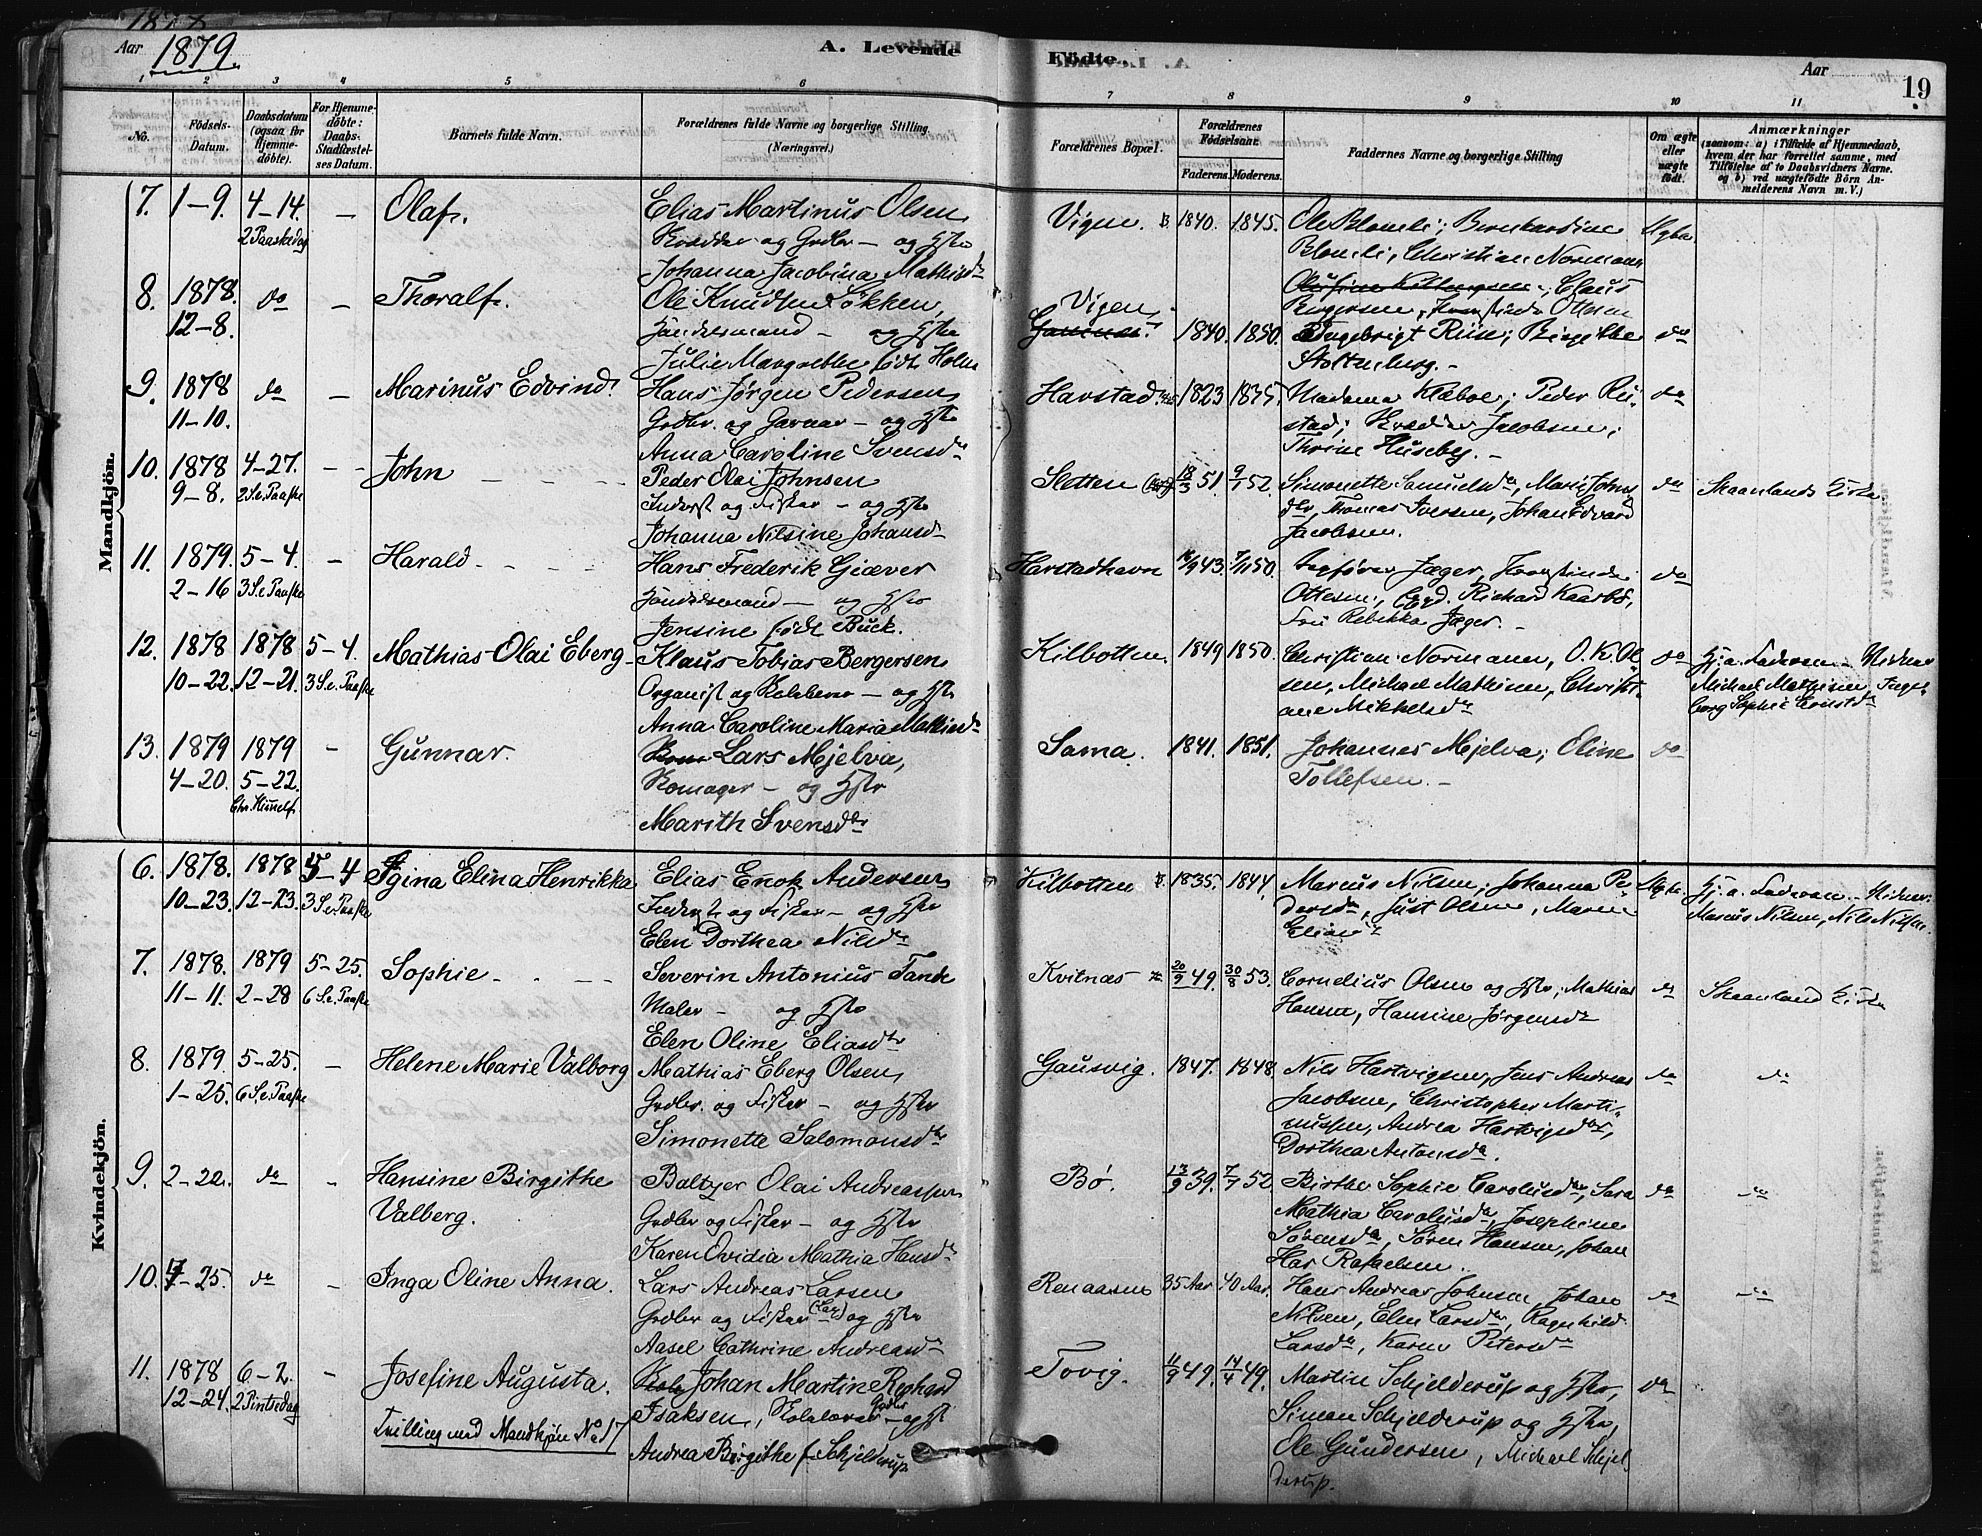 1878
Aar 1879.
A. Levende Födte.
Aar
19
1 2 3 4 5 6 7 8 9 10 11
No.
Födsels-Datum.
Daabsdatum (ogsaa for Hjemmedöbte).
For Hjemmedöbte: Daabs-Stadfæstelses Datum.
Barnets fulde Navn.
Forældrenes fulde Navne og borgerlige Stilling.
(Næringsvei.)
Forældrenes Bopæl.
Forældrenes Födselsaar.
Faderens. Moderens.
Faddernes Navne og borgerlige Stilling
Om ægte eller uægte födt.
Anmærkninger
(saasom: a) i Tilfælde af Hjemmedaab, hvem der har forrettet samme, med Tilföielse af to Daabsvidners Navne. og b) ved uægtefödte Börn Anmelderens Navn m. V.)
Mandkjön.
7. 1-9. 4-14. 2 Paaskedag — Olaf.
Elias Martinus Olsen
og Gdbr — og Hstr
Johanna Jacobina Mathisdr
Vigen. 1840. 1845.
Ole Blomli; Bernhardine
Blomli, Christian Normann
8. 1878. 12-8. do — Thoralf.
Ole Knudsen Løkken,
Handelsmand — og Hstr
Julie Margrethe født Holm
Vigen
1840. 1850.
Claus
Ottesen
Ingebrigt Riise; Birgitte
Stoltenberg. —
do
9. 1878 11-10. do — Marinus Edvind.
Hans Jørgen Pedersen
Gdbr. og Garver — og Hstr
Anna Caroline Svensdr
Harstad 1823 1835.
Madame Kaboe; Peder Rustad;
Jacobsen;
Thrine Huseby. —
do
10. 1878 9-8. 4-27. 2 S. e. Paaske — John
Peder Olai Johnsen
Inderst og Fisker — og Hstr
Johanna Nilsine Johansdr
Sletten 18/3 51. 9/7 52.
Simonette Samuelsdr, Marie Johnsdtr,
Thomas Iversen, Johan Edvard
Jacobsen.
do
Skaanlands Kirke
11. 1879. 2-16 5-4. 3 S. e. Paaske — Harald
Hans Frederik Giæver
Handelsmand — og Hstr
Jensine født Buck.
Harstadhavn 16/9 43. 7/11 50.
Sagfører Jæger,
Ottesen; Richard Kaarbø,
Fru Rebekka Jæger. —
do
12. 1878 10-22. 1878 12-21. 5-4. 3 S. e. Paaske Mathias Olai Eberg
Klaus Tobias Bergersen
Organist og Kolelærer — og Hstr
Anna Caroline Maria Mathiasdr
Kilbotten. 1849 1850.
Christian Normann, O. K. Olsen,
Michael Mathisen, Christiane
Mikkelsdr
do
Hj. a. Faderen — Vidner
Michael Mathisen, Ingeborg Sophie
13. 1879 4-20. 1879 5-22. Chr. Himmelf. — Gunnar.
Lars Mjelva,
Skomager — og Hstr
Marith Svensdtr
Sama. 1841. 1851.
Johannes Mjelva; Oline
Tollefsen. —
do
Kvindekjön.
6. 1878. 10-23. 1878 12-23. 5-4 3 S. e. Paaske Igina Elina Henrikka
Elias Enok Andersen
Inderst og Fisker — og Hstr
Elen Dorthea Nilsdr
Kilbotten 1835. 1844.
Marcus Nilsen, Johanna Pedersdr,
Just Olsen, Maren
Eliasdr
Ægte.
Hj. a. Faderen — Vidner:
Marcus Nilsen, Nils Nilsen.
7. 1878. 11-11. 1879 2-28 5-25. 6 S. e. Paaske Sophie
Severin Antonius Tande
Maler — og Hstr
Elen Oline Eliasdtr
Kvitnæs 20/9 49. 30/8 53.
Cornelius Olsen og Hstr, Mathias
Hansen, Hansine Jørgensdr
do
Skaanland Kirke
8. 1879. 1-25. 5-25. 6 S. e. Paaske — Helene Marie Valborg
Mathias Eberg Olsen
Gdbr. og Fisker — og Hstr
Simonette Salomonsdtr
Gausvig. 1847. 1848.
Nils Hartvigsen, Jens Andreas
Jacobsen, Christopher Martinussen,
Andrea Hartvigsdtr,
Dorthea Antonsdr.
do do
9. 2-22. do — Hansine Birgithe
Valberg.
Baltzer Olai Andreassen
Gdbr og Fisker — og Hstr
Karen Ovidia Mathia Hansdr
Bø. 13/9 39. 7/7 52.
Birthe Sophie Carolusdr, Sara
Mathia Carolusdr, Josephine
Sørensdr, Søren Hansen, Johan
Rafaelsen.
do do
10. 4-25. do — Inga Oline Anna.
Lars Andreas Larsen
Gdbr og Fisker og Hstr
Aasel Cathrine Andreasdr
Renaasen 35 Aar. 40 Aar.
Hans Andreas Johnsen, Johan
Nilsen, Elen Larsdtr, Ragnhild
Larsdr, Karen Petersdr
do do
11. 1878 12-24. 6-2. 2 Pintsedag — Josefine Augusta.
Tvilling med Mandkjøn No 17
Johan Martin Rephard
Isaksen, Kolelærer Gdbr — og Hst
Andrea Birgithe f. Schjelderup
Tovig. 11/9 49. 14/4 49.
Martin Schjelderup og Hstr,
Simon Schjelderup og Hstr,
Ole Gundersen, Michael Schjelderup.
do